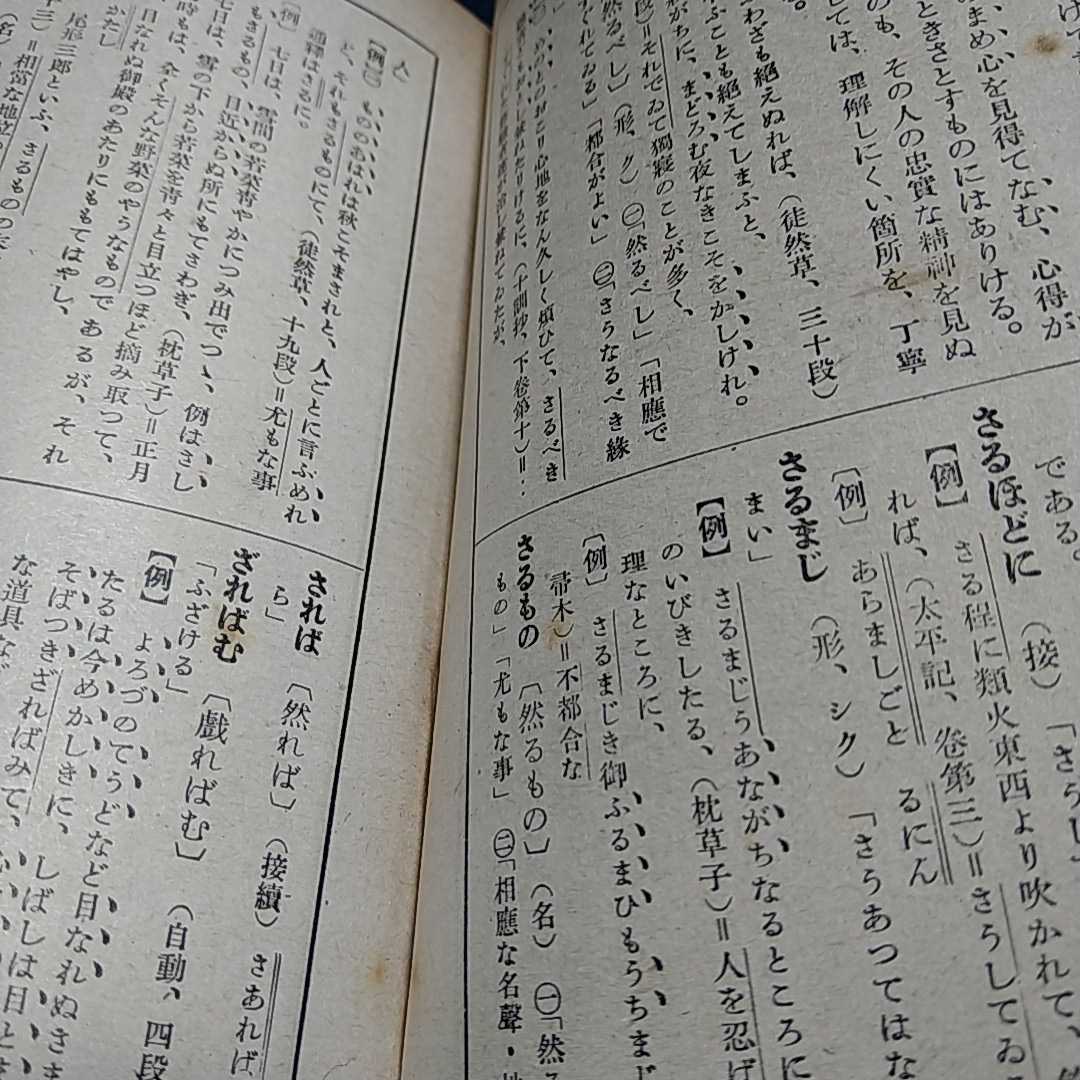 けてす
まめ心を見得てなむ、心得が
ときさとすものにはありける。
のも、その人の忠實な精神を見ぬ
しては、理解しにくい箇所を、丁寧
わさも絶えぬれば、(徒然草、三十段)
ふことも絶えてしまふと、
形がちに、まどろむ夜なきこそをかしけれ。
段)=それでゐて獨寢のことが多く、
るべし」(形、ク)㊀「然るべし」「相應で
すぐれてゐる」「都合がよい」㊁「さうなるべき緣
めのとのおこり心地をなん久しく煩ひて、さるべき
(十訓抄、下卷第十)=
である。
さるほどに(接)「さうし
【例】さる程に類火東西より吹かれて、
れば、(太平記、卷第三)=さうしてゐ
〔例〕あらましごと
るにん
さるまじ(形、シク)「さうあつてはな
まい」
【例】さるまじうあながちなるところに
のいびきしたる、(枕草子)=人を忍げ
理なところに、
〔例〕さるまじき御ふるまひもうちまじ
帚木)=不都合な
さるもの〔然るもの〕(名)㊀「然
もの」「尤もな事」㊁「相應な名聲・地
人
【例㊀】もののあはれは秋こそまされと、人ごとに言ふめれ
ど、それもさるものにて、(徒然草、十九段)=尤もな事
通釋はさるに。
〔例〕七日は、雪間の若菜青やかにつみ出でつゝ、例はさし
もさるもの、目近からぬ所にもてさわぎ、(枕草子)=正月
七日は、雪の下から若菜を青々と目立つほど摘み取つて、
時もは、全くそんな野菜のやうなものであるが、それ
目なれぬ御殿のあたりにももてはやし、
かたし
尾形三郎といふ、さるものの
三)=相當な地位
(名)
されば〔然れば〕(接續)さあれば、
ら」
ざればむ〔戲ればむ〕(自動、四段
「ふざける」
【例】よろづのてうどなど目なれぬさま
たるは今めかしきに、しばしは目とま
そばつきざればみて、
な道具など